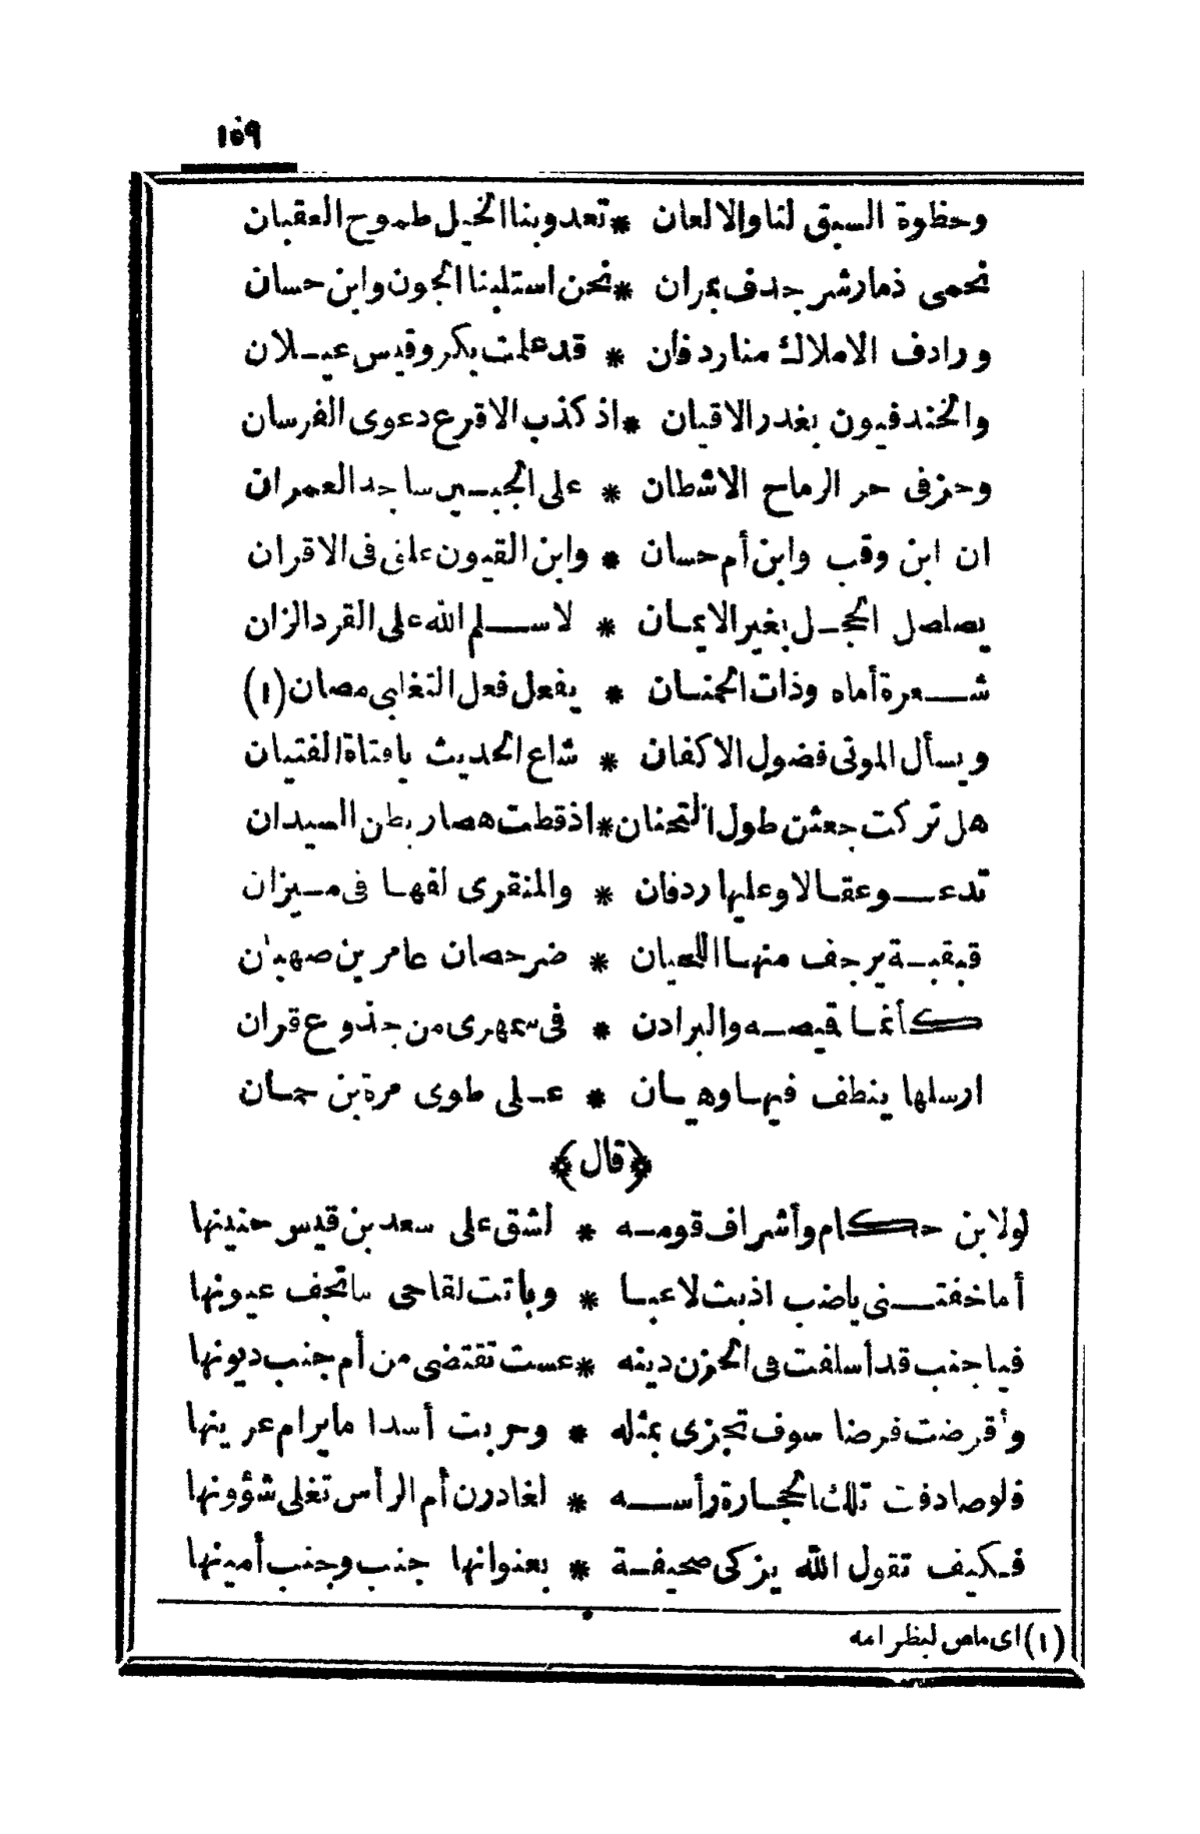 ١٥٩
وحظوة السبق لنا والالعان * تعدو بنا الخيل طموح العقبان
نحمى ذمار شرجدف بمران * نحن استلبنا الجون وابن حسان
ورادف الاملاك منا ردفان * قد علمت بكر وقيس عيـلان
والخندفيون بغدر الاقيان * اذ كذب الاقرع دعوى الفرسان
وحزفى حر الرماح الاشطان * على الجبـين ساجد العمران
ان ابن وقب وابن أم حسان * وابن القيون علق فى الاقران
يصلصل الحجـل بغير الايمـان * لا سـلم الله على القرد الزان
شـعرة أماه وذات الحمنـان * يفعل فعل التغلبى مصان (١)
ويسأل الموتى فضول الاكفان * شاع الحديث يا فتاة الفتيان
هل تركت جعثن طول التحنان * اذ قطت هصار بطن السيدان
تدعـو عقـالا وعليها ردفان * والمنقرى لفهـا فى مـيزان
قبقبـة يرجف منهـا اللحيان * ضر حصان عامر بن صهبان
كأنمـا قميصـه والبرادن * فى سمهرى من جذوع قران
ارسلها ينطف فيهـا وهيـان * عـلى طوى مرة بن حمـان
﴿قال﴾
لولا بن حكام وأشراف قومـه * لشق على سعد بن قيس حنينها
أما خفتـنى ياضب اذ بت لاعبـا * وباتت لقاحى ما تجف عيونها
فيا جنب قد أسلفت فى الحزن دينه * عست تقتضى من أم جنب ديونها
وأقرضت قرضا سوف تجزى بمثله * وحربت أسدا ما يرام عرينها
فلو صادفت تلك الحجـارة رأسـه * لغادرن أم الرأس تغلى شؤونها
فـكيف تقول الله يزكى صحيفـة * بعنوانها جنب وجنب أمينها
(١) اى ماص لبظر امه